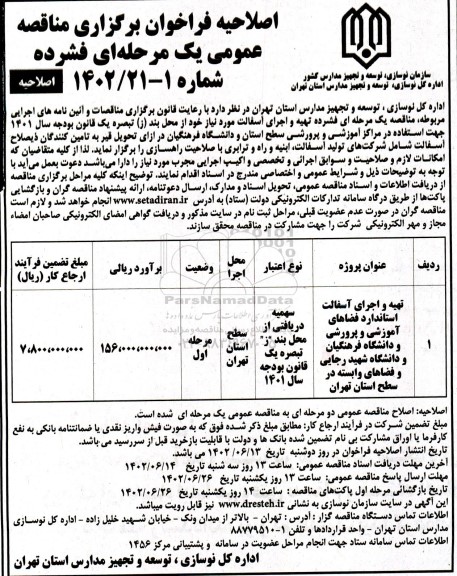 اصلاحیه فراخوان برگزاری مناقصه
عمومی یک مرحله‌ای فشرده
شماره ۱-۱۴۰۲/۲۱
اصلاحیه
سازمان نوسازی، توسعه و تجهیز مدارس کشور
اداره کل نوسازی، توسعه و تجهیز مدارس استان تهران
اداره کل نوسازی ، توسعه و تجهیز مدارس استان تهران در نظر دارد با رعایت قانون برگزاری مناقصات و آئین نامه های اجرایی
مربوطه، مناقصه یک مرحله ای فشرده تهیه و اجرای آسفالت مورد نیاز خود از محل بند (ز) تبصره یک قانون بودجه سال ۱۴۰۱
جهت استفاده در مراکز آموزشی و پرورشی سطح استان و دانشگاه فرهنگیان در ازای تحویل قیر به تامین کنندگان ذیصلاح
آسفالت شامل شرکت‌های تولید آسفالت، ابنیه و راه و ترابری با صلاحیت راهسازی را برگزار نماید، لذا از کلیه متقاضیان که
امکانات لازم و صلاحیت و سوابق اجرائی و تخصصی و اکیپ اجرایی مجرب مورد نیاز را دارا می‌باشند دعوت بعمل می‌آید با
توجه به توضیحات ذیل و شرایط عمومی و اختصاصی مندرج در اسناد اقدام نمایند. توضیح اینکه کلیه مراحل برگزاری مناقصه
از دریافت اطلاعات و اسناد مناقصه عمومی، تحویل اسناد و مدارک، ارسال دعوتنامه، ارائه پیشنهاد مناقصه گران و بازگشایی
پاکت‌ها از طریق درگاه سامانه تدارکات الکترونیکی دولت (ستاد) به آدرس www.setadiran.ir انجام خواهد شد و لازم است
مناقصه گران در صورت عدم عضویت قبلی، مراحل ثبت نام در سایت مذکور و دریافت گواهی امضای الکترونیکی صاحبان امضاء
مجاز و مهر الکترونیکی شرکت را جهت مشارکت در مناقصه محقق سازند.
ردیف عنوان پروژه نوع اعتبار محل اجرا وضعیت برآورد ریالی مبلغ تضمین فرآیند ارجاع کار (ریال)
۱ تهیه و اجرای آسفالت استاندارد فضاهای آموزشی و پرورشی و دانشگاه فرهنگیان و دانشگاه شهید رجایی و فضاهای وابسته در سطح استان تهران سهمیه دریافتی از محل بند "ز" تبصره یک قانون بودجه سال ۱۴۰۱ سطح استان تهران مرحله اول ۱۵۶,۰۰۰,۰۰۰,۰۰۰ ۷,۸۰۰,۰۰۰,۰۰۰
ParsNamadData
اصلاحیه: اصلاح مناقصه عمومی دو مرحله ای به مناقصه عمومی یک مرحله ای شده است.
مبلغ تضمین شرکت در فرآیند ارجاع کار: مطابق مبلغ ذکر شده فوق که به صورت فیش واریز نقدی یا ضمانتنامه بانکی به نفع
کارفرما یا اوراق مشارکت بی نام تضمین شده بانک ها و دولت با قابلیت بازخرید قبل از سررسید می باشد.
تاریخ انتشار اصلاحیه فراخوان در روز دوشنبه تاریخ ۱۴۰۲/۰۶/۱۳ می باشد.
آخرین مهلت دریافت اسناد مناقصه عمومی: ساعت ۱۳ روز سه شنبه تاریخ ۱۴۰۲/۰۶/۱۴
مهلت ارسال پاسخ مناقصه عمومی: ساعت ۱۳ روز یکشنبه تاریخ ۱۴۰۲/۰۶/۲۶
تاریخ بازگشائی مرحله اول پاکت‌های مناقصه : ساعت ۱۴ روز یکشنبه تاریخ ۱۴۰۲/۰۶/۲۶
این آگهی در سایت سازمان نوسازی به نشانی www.dresteh.ir نیز قابل رویت میباشد.
اطلاعات تماس دستگاه مناقصه گزار : آدرس : تهران - بالاتر از میدان ونک - خیابان شهید خلیل زاده - اداره کل نوسازی
مدارس استان تهران - واحد قراردادها و تلفن ۱-۸۸۷۷۹۵۱۰
اطلاعات تماس سامانه ستاد جهت انجام مراحل عضویت در سامانه و پشتیبانی مرکز ۱۴۵۶
اداره کل نوسازی ، توسعه و تجهیز مدارس استان تهران